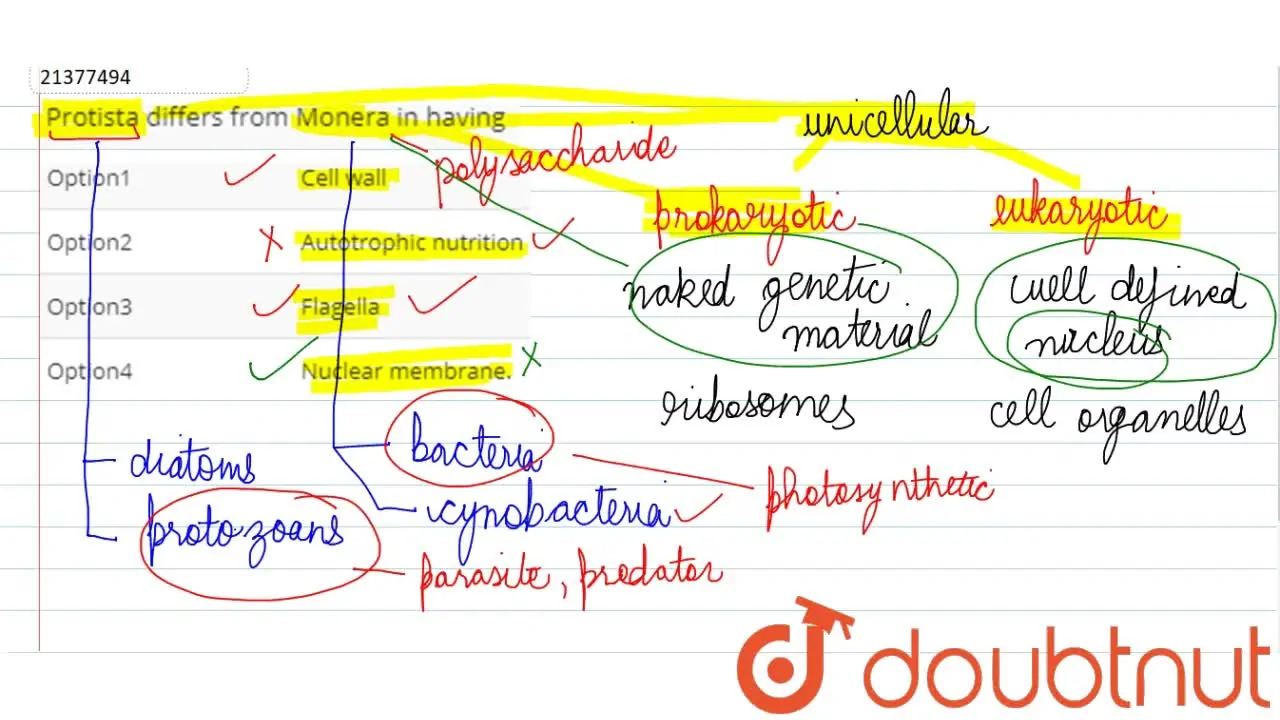 21377494
Protista differs from Monera in having
unicellular
polysaccharide
Option1 Cell wall
prokaryotic eukaryotic
Option2 Autotrophic nutrition
naked genetic material
well defined nucleus
Option3 Flagella
Option4 Nuclear membrane.
ribosomes cell organelles
diatoms bacteria
photosynthetic
protozoans cynobacteria
parasite, predator
doubtnut